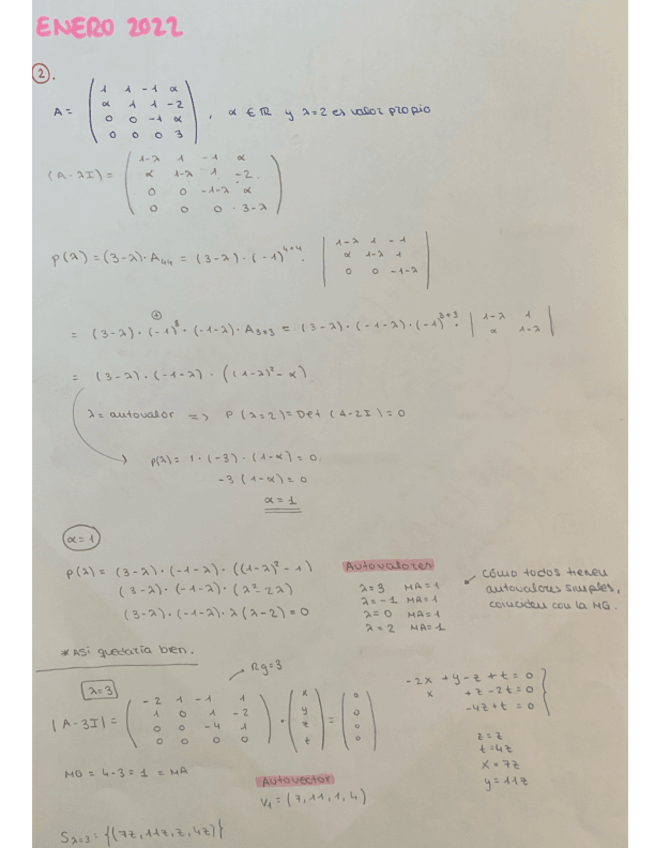 ENERO 2022
2.
A = ( 1 1 -1 α
α 1 1 -2
0 0 -1 α
0 0 0 3 ) , α ∈ ℝ y λ=2 es valor propio
(A-λI) = ( 1-λ 1 -1 α
α 1-λ 1 -2
0 0 -1-λ α
0 0 0 3-λ )
p(λ) = (3-λ)·A₄₄ = (3-λ)·(-1)⁴⁺⁴· | 1-λ 1 -1
α 1-λ 1
0 0 -1-λ |
= (3-λ)·(-1)⁸·(-1-λ)·A₃ₓ₃ = (3-λ)·(-1-λ)·(-1)³⁺³· | 1-λ 1
α 1-λ |
= (3-λ)·(-1-λ)·((1-λ)²-α)
λ = autovalor => P(λ=2) = Det(A-2I) = 0
p(λ) = 1·(-3)·(1-α) = 0
-3(1-α) = 0
α = 1
α=1
p(λ) = (3-λ)·(-1-λ)·((1-λ)²-1)
(3-λ)·(-1-λ)·(λ²-2λ)
(3-λ)·(-1-λ)·λ(λ-2) = 0
Autovalores
λ=3 MA=1
λ=-1 MA=1
λ=0 MA=1
λ=2 MA=1
cómo todos tienen
autovalores simples,
coinciden con la MG.
*Así quedaría bien.
λ=3
Rg=3
|A-3I| = ( -2 1 -1 1
1 0 1 -2
0 0 -4 1
0 0 0 0 ) · ( x
y
z
t ) = ( 0
0
0
0 )
-2x + y - z + t = 0
x + z - 2t = 0
-4z + t = 0
z = z
t = 4z
x = 7z
y = 11z
MG = 4-3 = 1 = MA
Autovector
V₁ = (7, 11, 1, 4)
Sλ=3 = {(7z, 11z, z, 4z)}